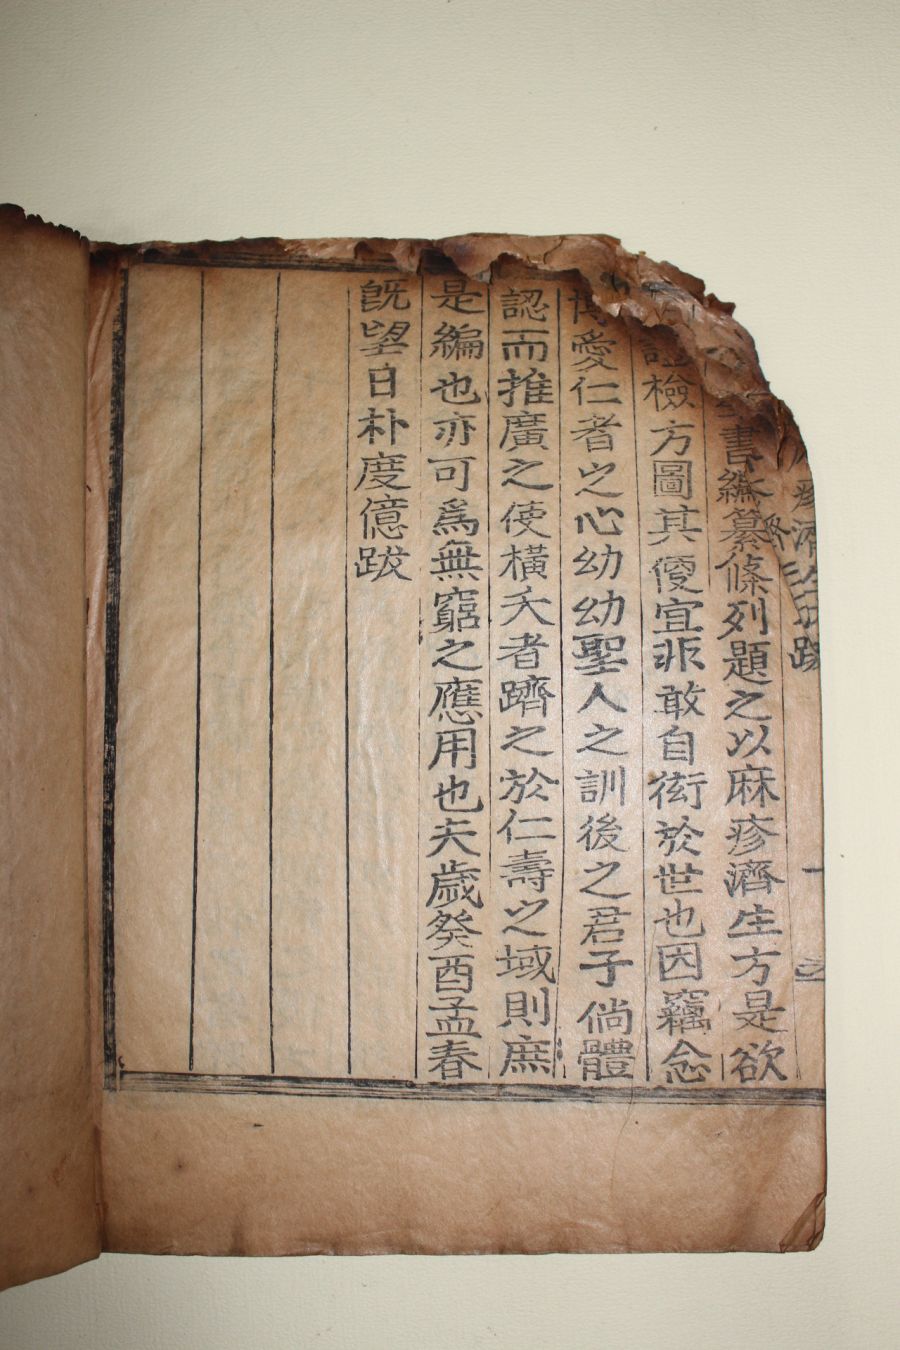 書編纂條列題之以麻疹濟生方是欲
證檢方圖其便宜非敢自衒於世也因竊念
博愛仁者之心幼幼聖人之訓後之君子倘體
認而推廣之使橫夭者躋之於仁壽之域則庶
是編也亦可爲無窮之應用也夫歲癸酉孟春
旣望日朴度億跋
疹濟生方跋